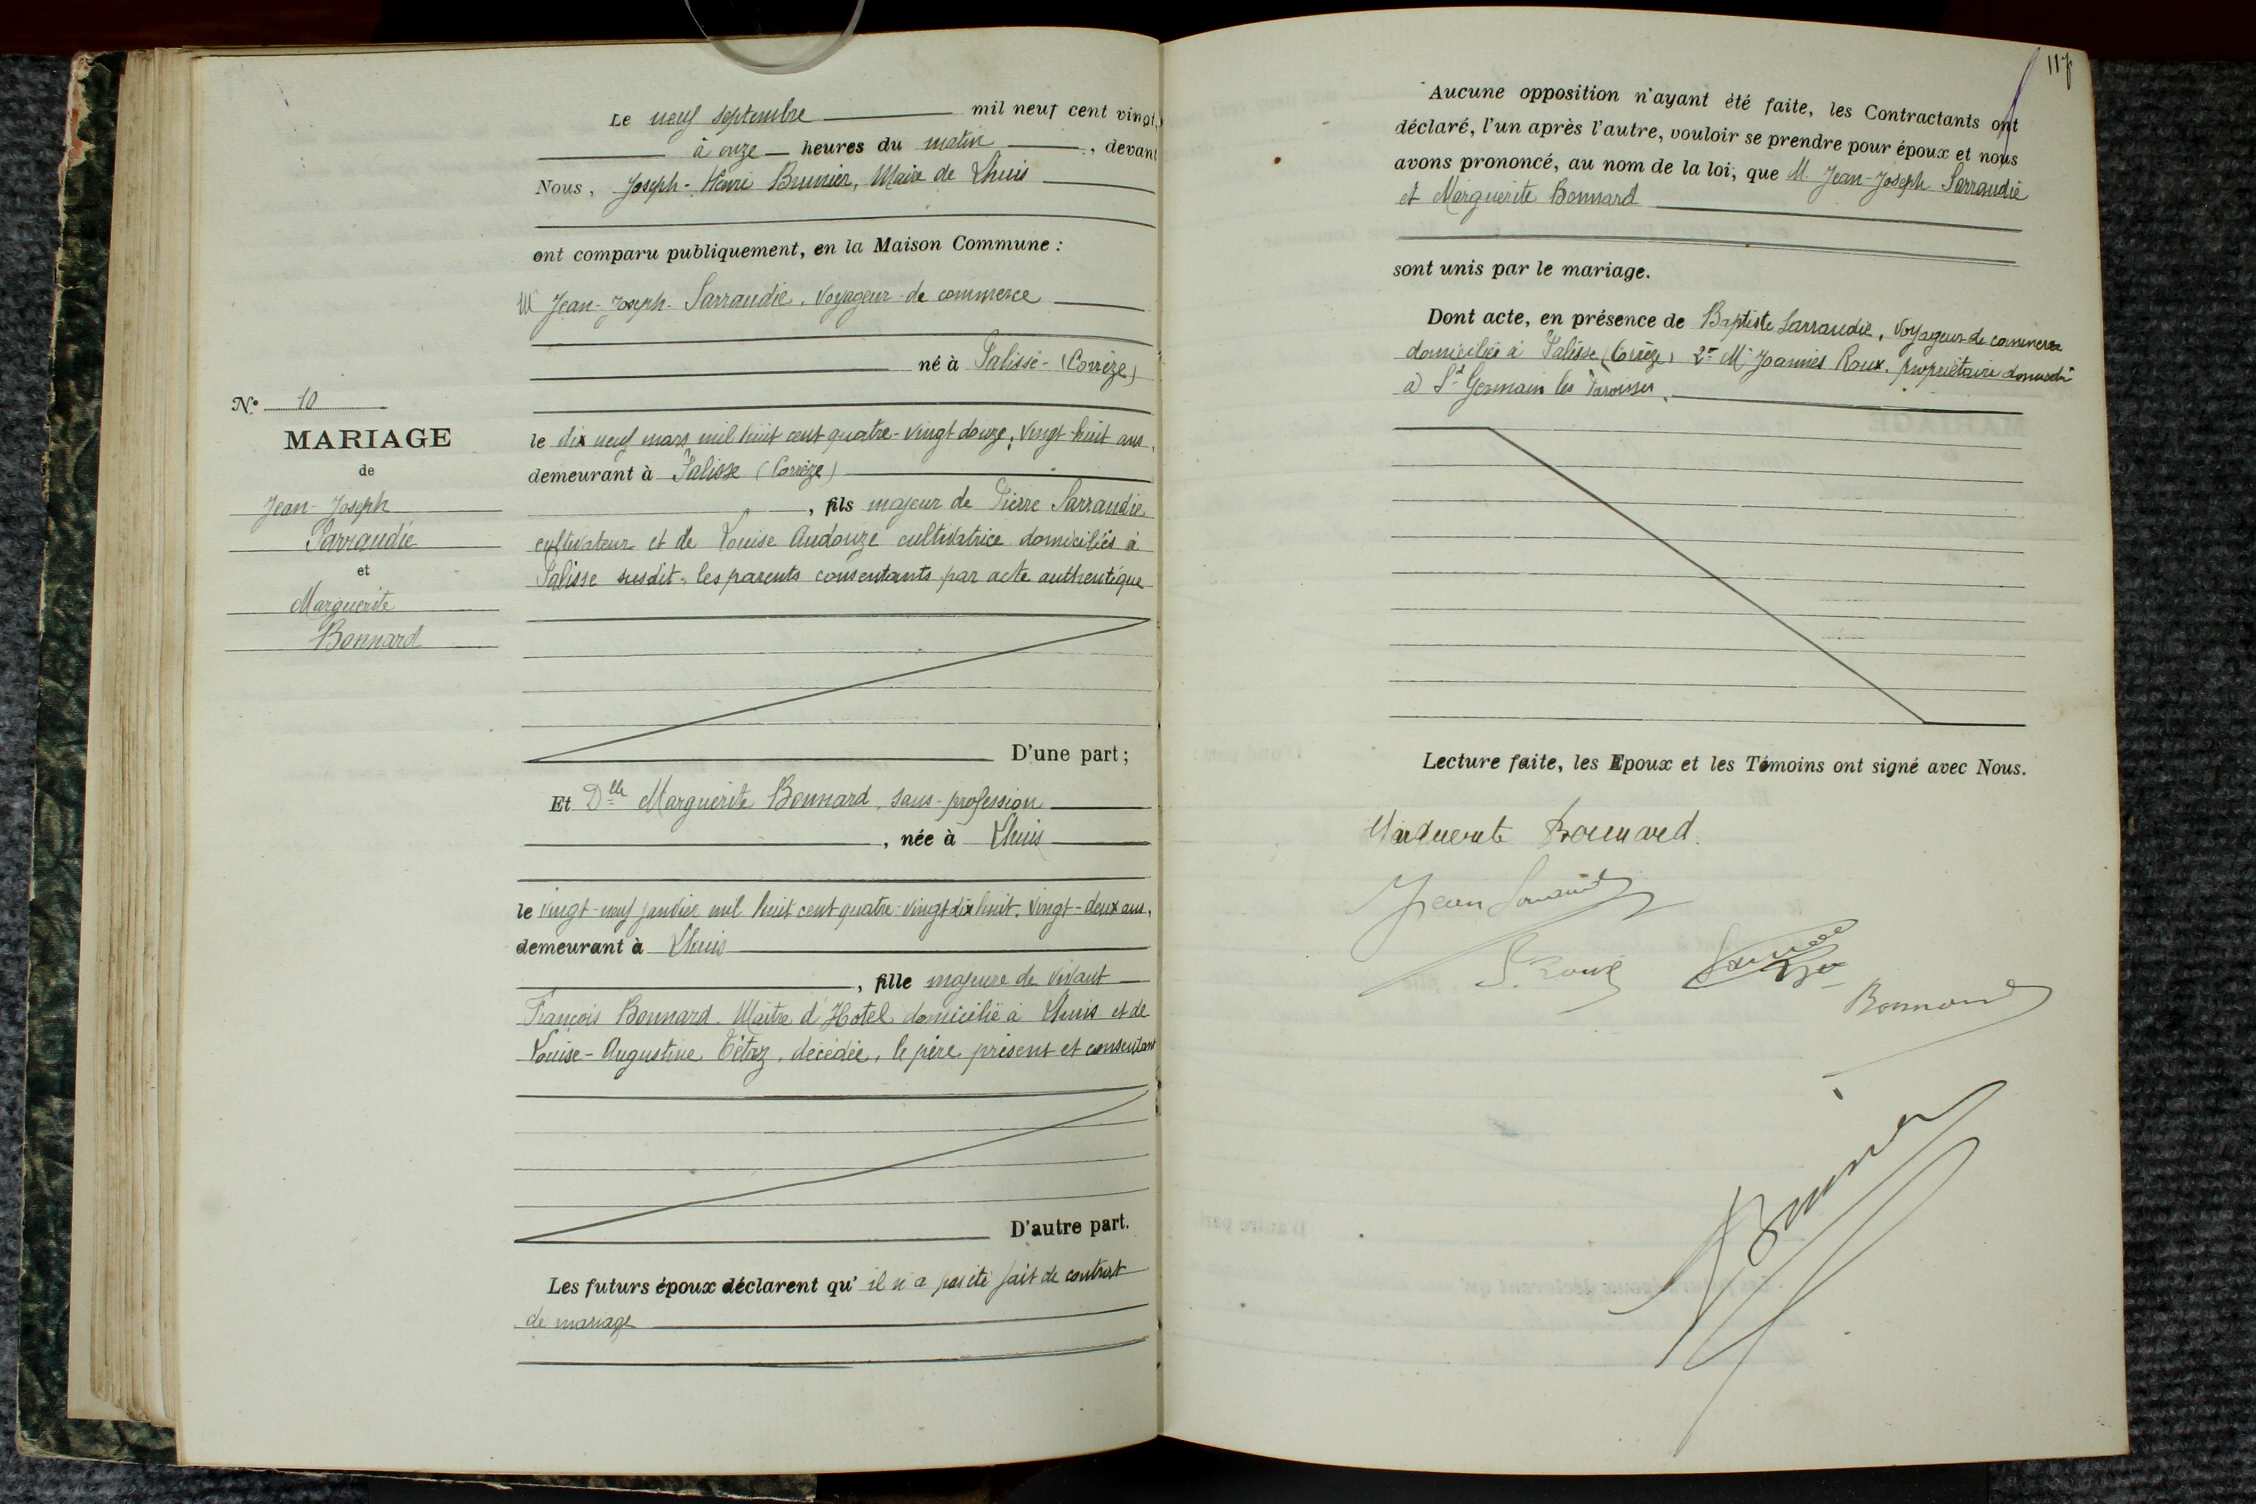 Le neuf septembre mil neuf cent vingt,
à onze heures du matin, devant
Nous, Joseph-Henri Brunier, Maire de Lhuis
ont comparu publiquement, en la Maison Commune :
M Jean-Joseph Sarraudie, voyageur de commerce
né à Palisse (Corrèze)
N° 10
MARIAGE
de
Jean-Joseph
Sarraudie
et
Marguerite
Bonnard
le dix neuf mars mil huit cent quatre-vingt douze, vingt-huit ans,
demeurant à Palisse (Corrèze)
, fils majeur de Pierre Sarraudie
cultivateur et de Louise Audouze cultivatrice domiciliés à
Palisse susdit, les parents consentants par acte authentique
D'une part ;
Et Dlle Marguerite Bonnard, sans profession
, née à Lhuis
le vingt-neuf janvier mil huit cent quatre-vingt dix huit, vingt-deux ans,
demeurant à Lhuis
, fille majeure de vivant
François Bonnard, Maître d'Hotel domicilié à Lhuis et de
Louise-Augustine Tétaz, décédée, le père présent et consentant
D'autre part.
Les futurs époux déclarent qu'il n'a pas été fait de contrat
de mariage
117
Aucune opposition n'ayant été faite, les Contractants ont
déclaré, l'un après l'autre, vouloir se prendre pour époux et nous
avons prononcé, au nom de la loi, que M. Jean-Joseph Sarraudie
et Marguerite Bonnard
sont unis par le mariage.
Dont acte, en présence de Baptiste Sarraudie, voyageur de commerce
domicilié à Palisse (Corrèze) 2° Mr Joannès Roux, propriétaire
à St Germain les Paroisses,
Lecture faite, les Epoux et les Témoins ont signé avec Nous.
Marguerite Bonnard
Jean Sarraudie
J. Roux
Bonnard
Brunier